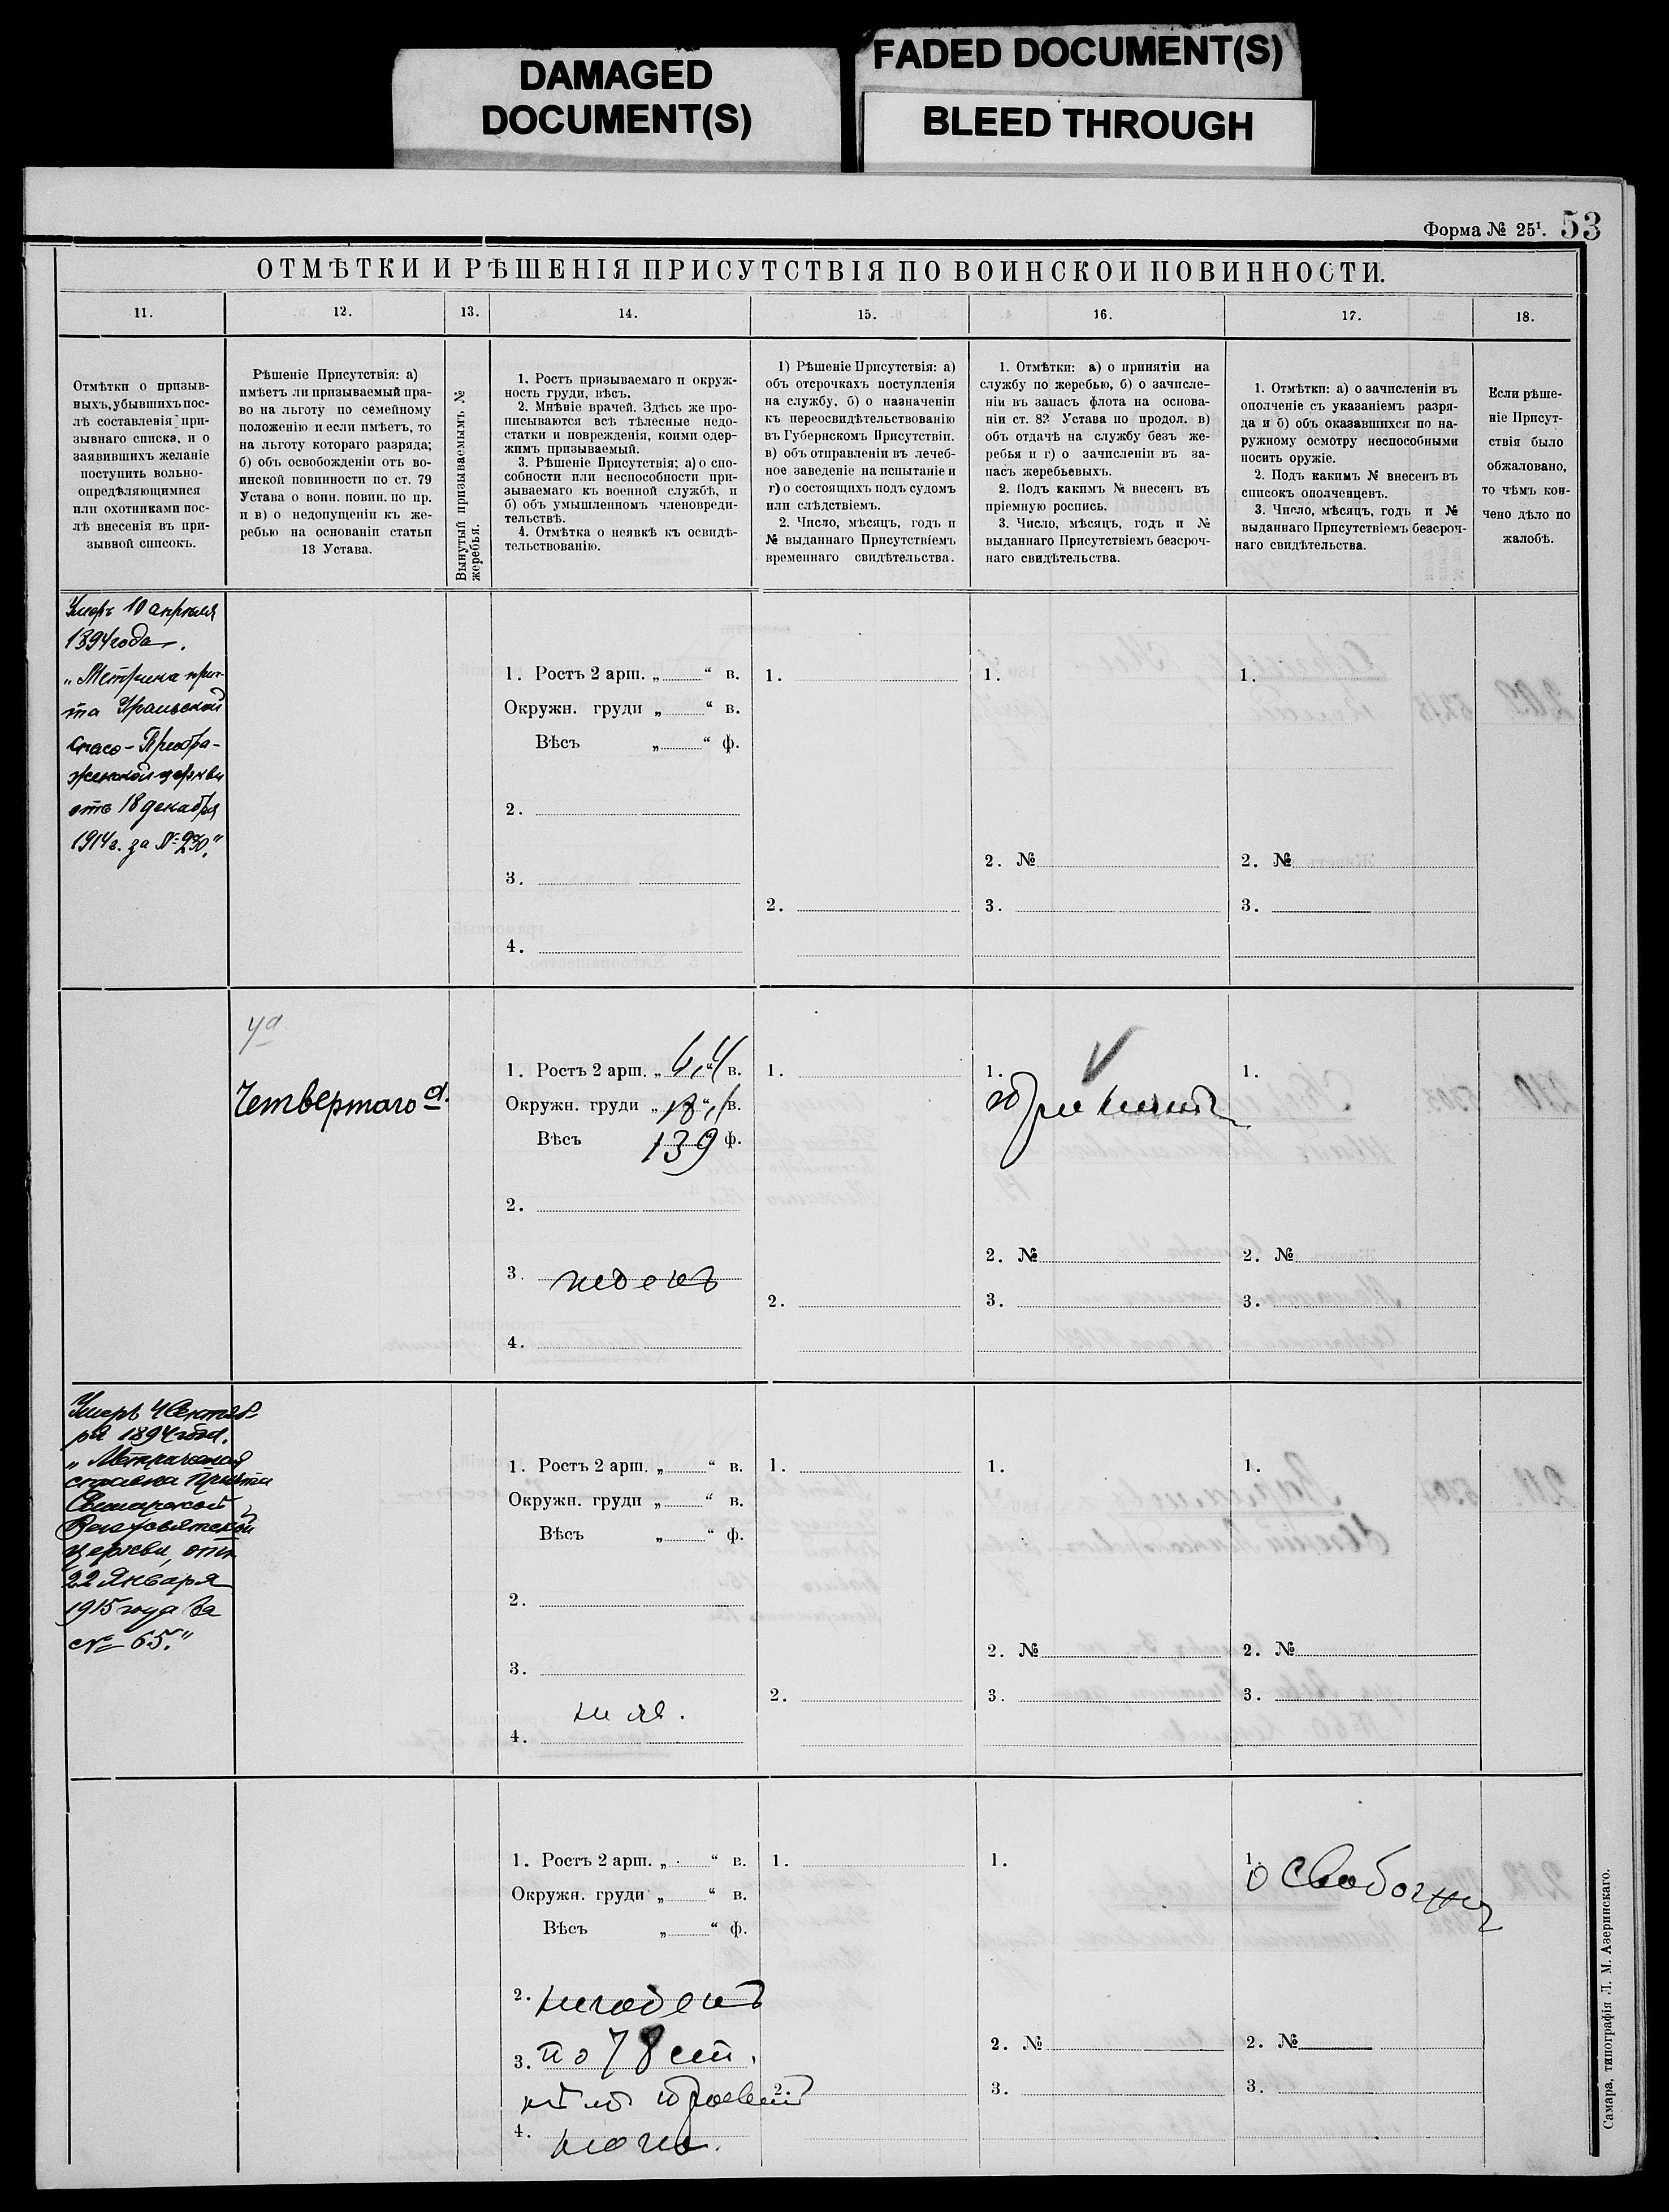 DAMAGED
DOCUMENT(S)
FADED DOCUMENT(S)
BLEED THROUGH
Форма № 25¹. 53
ОТМѢТКИ И РѢШЕНІЯ ПРИСУТСТВІЯ ПО ВОИНСКОИ ПОВИННОСТИ.
11. 12. 13. 14. 15. 16. 17. 18.
Отмѣтки о призыв-
ныхъ, убывшихъ пос-
лѣ составленія при-
зывнаго списка, и о
заявившихъ желаніе
поступить вольно-
опредѣляющимися
или охотниками пос-
лѣ внесенія въ при-
зывной списокъ.
Рѣшеніе Присутствія: а)
имѣетъ ли призываемый пра-
во на льготу по семейному
положенію и если имѣетъ, то
на льготу котораго разряда;
б) объ освобожденіи отъ во-
инской повинности по ст. 79
Устава о воин. повин. по пр.
и в) о недопущеніи къ же-
ребью на основаніи статьи
13 Устава.
Вынутый призываемымъ №
жеребья.
1. Ростъ призываемаго и окруж-
ность груди, вѣсъ.
2. Мнѣніе врачей. Здѣсь же про-
писываются всѣ тѣлесные недо-
статки и поврежденія, коими одер-
жимъ призываемый.
3. Рѣшеніе Присутствія; а) о спо-
собности или неспособности при-
зываемаго къ военной службѣ, и
б) объ умышленномъ членовреди-
тельствѣ.
4. Отмѣтка о неявкѣ къ освидѣ-
тельствованію.
1) Рѣшеніе Присутствія: а)
объ отсрочкахъ поступленія
на службу, б) о назначеніи
къ переосвидѣтельствованію
въ Губернскомъ Присутствіи.
в) объ отправленіи въ лечеб-
ное заведеніе на испытаніе и
г) о состоящихъ подъ судомъ
или слѣдствіемъ.
2. Число, мѣсяцъ, годъ и
№ выданнаго Присутствіемъ
временнаго свидѣтельства.
1. Отмѣтки: а) о принятіи на
службу по жеребью, б) о зачисле-
ніи въ запасъ флота на основа-
ніи ст. 82 Устава по продол. в)
объ отдачѣ на службу безъ же-
ребья и г) о зачисленіи въ за-
пасъ жеребьевыхъ.
2. Подъ какимъ № внесенъ въ
пріемную роспись.
3. Число, мѣсяцъ, годъ и №
выданнаго Присутствіемъ безсроч-
наго свидѣтельства.
1. Отмѣтки: а) о зачисленіи въ
ополченіе съ указаніемъ разря-
да и б) объ оказавшихся по на-
ружному осмотру неспособными
носить оружіе.
2. Подъ какимъ № внесенъ въ
списокъ ополченцевъ.
3. Число, мѣсяцъ, годъ и №
выданнаго Присутствіемъ безсроч-
наго свидѣтельства.
Если рѣше-
ніе Присут-
ствія было
обжаловано,
то чѣмъ кон-
чено дѣло по
жалобѣ.
Умеръ 10 апрѣля
1894 года.
„Метрика прич-
та Уральской
Спасо-Преобра-
женской церкви
отъ 18 декабря
1914 г. за № 230."
1. Ростъ 2 арш. „ “ в. 1. 1. 1.
Окружн. груди „ “ в.
Вѣсъ „ “ ф.
2.
2. № 2. №
3.
2. 3. 3.
4.
4а
Четвертаго а.
1. Ростъ 2 арш. „ 4,4 в. 1. 1. 1.
Окружн. груди „ 18,1 в.
Вѣсъ 139 ф.
2.
2. № 2. №
3. годенъ
2. 3. 3.
4.
Умеръ 4 Сентяб-
ря 1894 года.
„Метрическая
справка Причта
Самарской
Всехсвятской
церкви, отъ
22 Января
1915 года за
№ 65."
1. Ростъ 2 арш. „ “ в. 1. 1. 1.
Окружн. груди „ “ в.
Вѣсъ „ “ ф.
2.
2. № 2. №
3.
2. 3. 3.
не яв.
4.
1. Ростъ 2 арш. „ “ в. 1. 1. 1.
Окружн. груди „ “ в.
Вѣсъ „ “ ф.
2. негоденъ
2. № 2. №
3. по 78 ст.
2. 3. 3.
4.
Самара, типографія Л. М. Азеринскаго.